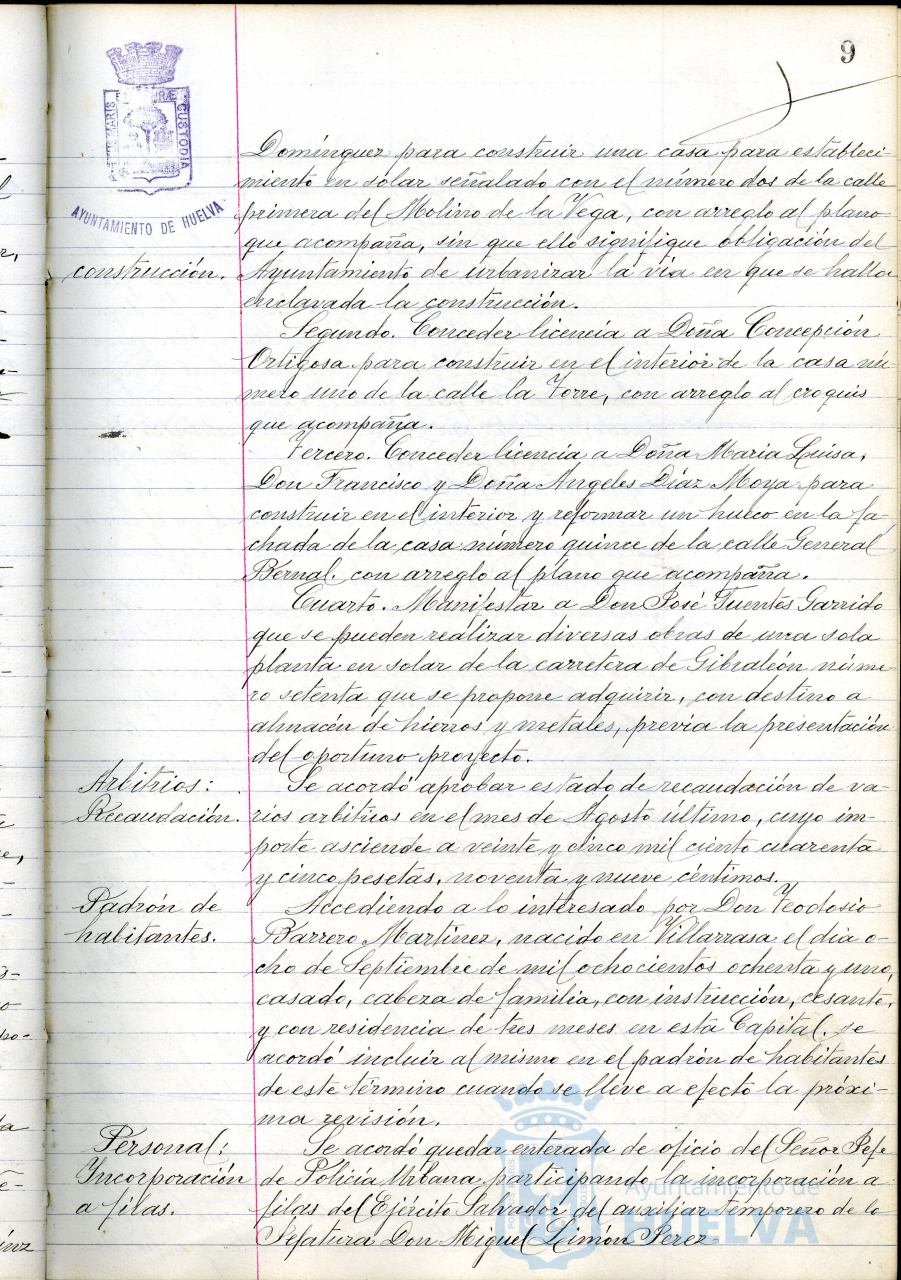 9
PORTUS MARIS ET TERRÆ CUSTODIA
AYUNTAMIENTO DE HUELVA
construcción.
Domínguez para construir una casa para estableci
miento en solar señalado con el número dos de la calle
primera del Molino de la Vega, con arreglo al plano
que acompaña, sin que ello signifique obligación del
Ayuntamiento de urbanizar la vía en que se halla
enclavada la construcción.
Segundo. Conceder licencia a Doña Concepción
Ortigosa para construir en el interior de la casa nú-
mero uno de la calle la Torre, con arreglo al croquis
que acompaña.
Tercero. Conceder licencia a Doña Maria Luisa,
Don Francisco y Doña Angeles Díaz Moya para
construir en el interior y reformar un hueco en la fa-
chada de la casa número quince de la calle General
Bernal. con arreglo al plano que acompaña.
Cuarto. Manifestar a Don José Fuentes Garrido
que se pueden realizar diversas obras de una sola
planta en solar de la carretera de Gibraleón núme-
ro setenta que se propone adquirir, con destino a
almacén de hierros y metales, previa la presentación
del oportuno proyecto.
Arbitrios:
Recaudación.
Se acordó aprobar estado de recaudación de va-
rios arbitrios en el mes de Agosto último, cuyo im-
porte asciende a veinte y cinco mil ciento cuarenta
y cinco pesetas, noventa y nueve céntimos.
Padrón de
habitantes.
Accediendo a lo interesado por Don Teodosio
Barrero Martinez, nacido en Villarrasa el día o-
cho de Septiembre de mil ochocientos ochenta y uno,
casado, cabeza de familia, con instrucción, cesante,
y con residencia de tres meses en esta Capital. se
acordó incluir al mismo en el padrón de habitantes
de este término cuando se lleve a efecto la próxi-
ma revisión.
Personal:
Incorporación
a filas.
Se acordó quedar enterada de oficio del Señor Jefe
de Policía Urbana participando la incorporación a
filas del Ejército Salvador del auxiliar temporero de la
Jefatura Don Miguel Limón Perez-
Ayuntamiento de
HUELVA